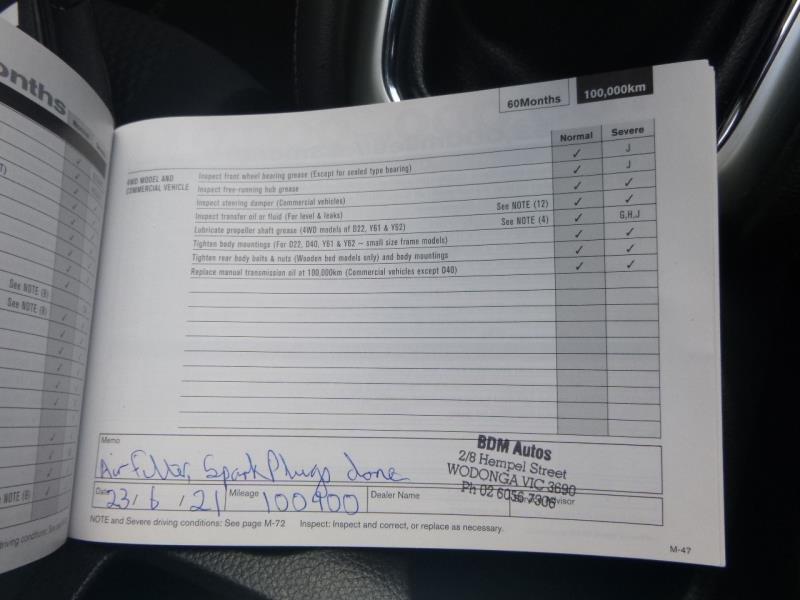 onths
See NOTE (9)
See NOTE (9)
NOTE (8)
driving conditions: Se
60Months 100,000km
Normal Severe
4WD MODEL AND
COMMERCIAL VEHICLE
Inspect front wheel bearing grease (Except for sealed type bearing) ✓ J
Inspect free-running hub grease ✓ J
Inspect steering damper (Commercial vehicles) ✓ ✓
Inspect transfer oil or fluid (For level & leaks) See NOTE (12) ✓ ✓
Lubricate propeller shaft grease (4WD models of D22, Y61 & Y62) See NOTE (4) ✓ G,H,J
Tighten body mountings (For D22, D40, Y61 & Y62 – small size frame models) ✓ ✓
Tighten rear body bolts & nuts (Wooden bed models only) and body mountings ✓ ✓
Replace manual transmission oil at 100,000km (Commercial vehicles except D40) ✓ ✓
Memo
Air Filter, Spark Plugs done
BDM Autos
2/8 Hempel Street
WODONGA VIC 3690
Ph 02 6056 7306
Date 23/6/21 Mileage 100900 Dealer Name
NOTE and Severe driving conditions: See page M-72 Inspect: Inspect and correct, or replace as necessary.
M-47